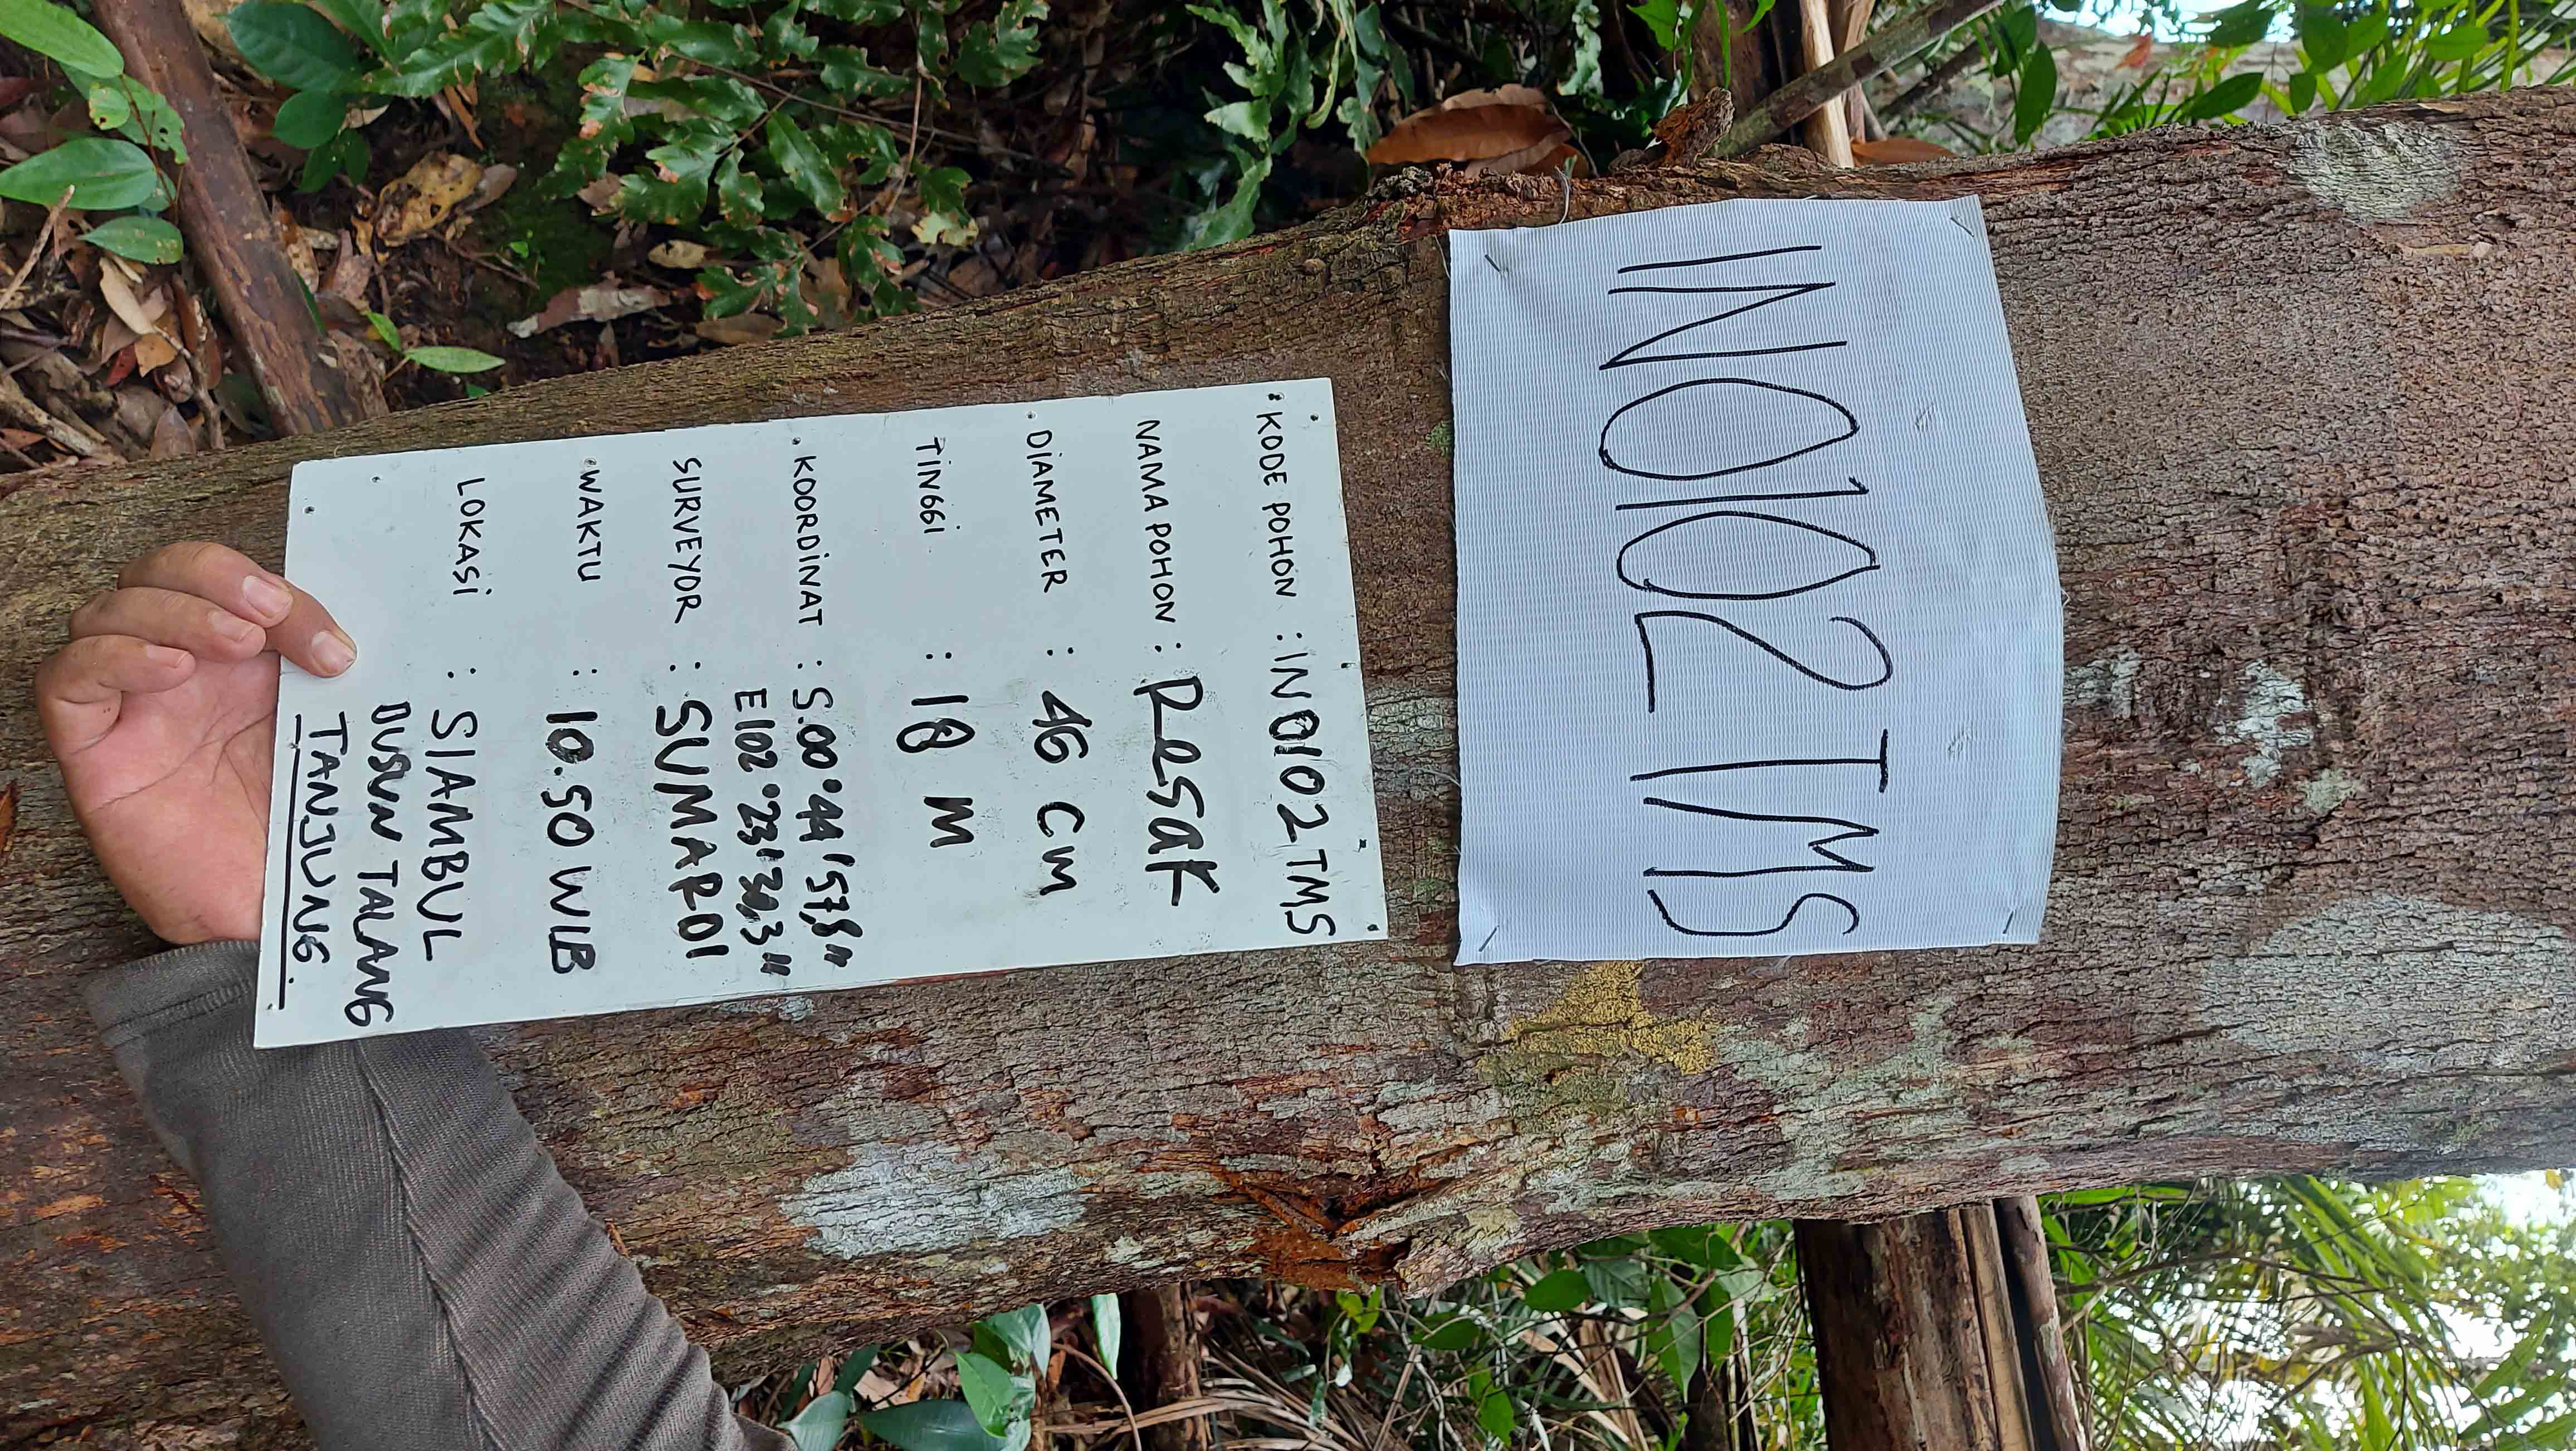 IN0102TMS
KODE POHON : IN0102TMS
NAMA POHON : Resak
DIAMETER : 46 cm
TINGGI : 18 m
KOORDINAT : S.00°44'57,8"
E102°23'30,3"
SURVEYOR : SUMARDI
WAKTU : 10.50 WIB
LOKASI : SIAMBUL
DUSUN TALANG
TANJUNG.